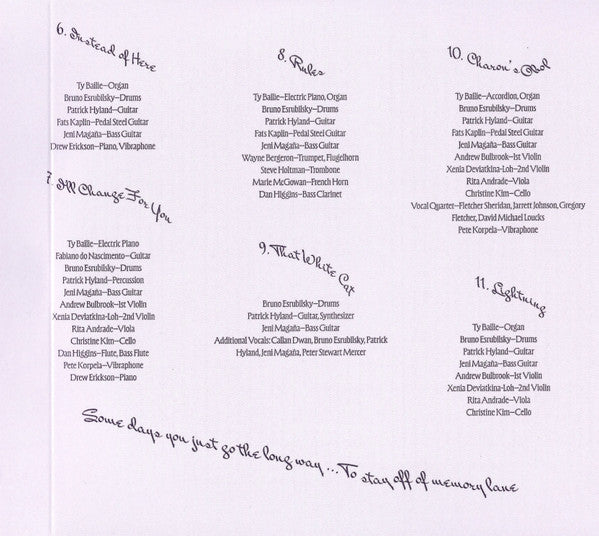 6. Instead of Here
Ty Bailie–Organ
Bruno Esrubilsky–Drums
Patrick Hyland–Guitar
Fats Kaplin–Pedal Steel Guitar
Jeni Magaña–Bass Guitar
Drew Erickson–Piano, Vibraphone
7. I'll Change For You
Ty Bailie–Electric Piano
Fabiano do Nascimento–Guitar
Bruno Esrubilsky–Drums
Patrick Hyland–Percussion
Jeni Magaña–Bass Guitar
Andrew Bulbrook–1st Violin
Xenia Deviatkina-Loh–2nd Violin
Rita Andrade–Viola
Christine Kim–Cello
Dan Higgins–Flute, Bass Flute
Pete Korpela–Vibraphone
Drew Erickson–Piano
8. Rules
Ty Bailie–Electric Piano, Organ
Bruno Esrubilsky–Drums
Patrick Hyland–Guitar
Fats Kaplin–Pedal Steel Guitar
Jeni Magaña–Bass Guitar
Wayne Bergeron–Trumpet, Flugelhorn
Steve Holtman–Trombone
Marie McGowan–French Horn
Dan Higgins–Bass Clarinet
9. That White Cat
Bruno Esrubilsky–Drums
Patrick Hyland–Guitar, Synthesizer
Jeni Magaña–Bass Guitar
Additional Vocals: Callan Dwan, Bruno Esrubilsky, Patrick
Hyland, Jeni Magaña, Peter Stewart Mercer
10. Charon's Obol
Ty Bailie–Accordion, Organ
Bruno Esrubilsky–Drums
Patrick Hyland–Guitar
Fats Kaplin–Pedal Steel Guitar
Jeni Magaña–Bass Guitar
Andrew Bulbrook–1st Violin
Xenia Deviatkina-Loh–2nd Violin
Rita Andrade–Viola
Christine Kim–Cello
Vocal Quartet–Fletcher Sheridan, Jarrett Johnson, Gregory
Fletcher, David Michael Loucks
Pete Korpela–Vibraphone
11. Lightning
Ty Bailie–Organ
Bruno Esrubilsky–Drums
Patrick Hyland–Guitar
Jeni Magaña–Bass Guitar
Andrew Bulbrook–1st Violin
Xenia Deviatkina-Loh–2nd Violin
Rita Andrade–Viola
Christine Kim–Cello
Some days you just go the long way ... To stay off of memory lane